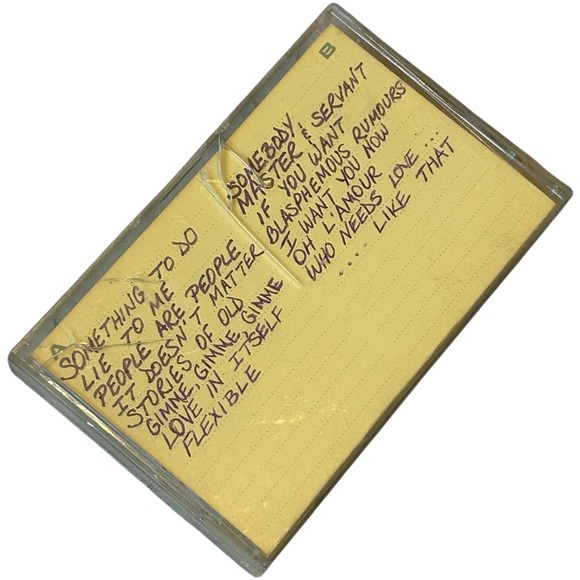 A
SOMETHING TO DO
LIE TO ME
PEOPLE ARE PEOPLE
IT DOESN'T MATTER
STORIES OF OLD
GIMME GIMME GIMME
LOVE IN ITSELF
FLEXIBLE
B
SOMEBODY
MASTER & SERVANT
IF YOU WANT
BLASPHEMOUS RUMOURS
I WANT YOU NOW
OH L'AMOUR
WHO NEEDS LOVE ...
.... LIKE THAT